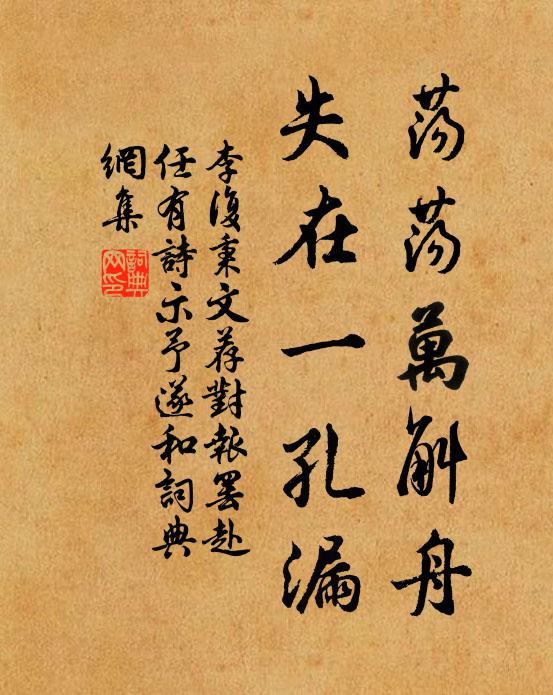 蕩蕩萬斛舟
失在一孔漏
李復秉文荐對報罷赴
任有詩示予遂和詞典
網集
詞典
网印